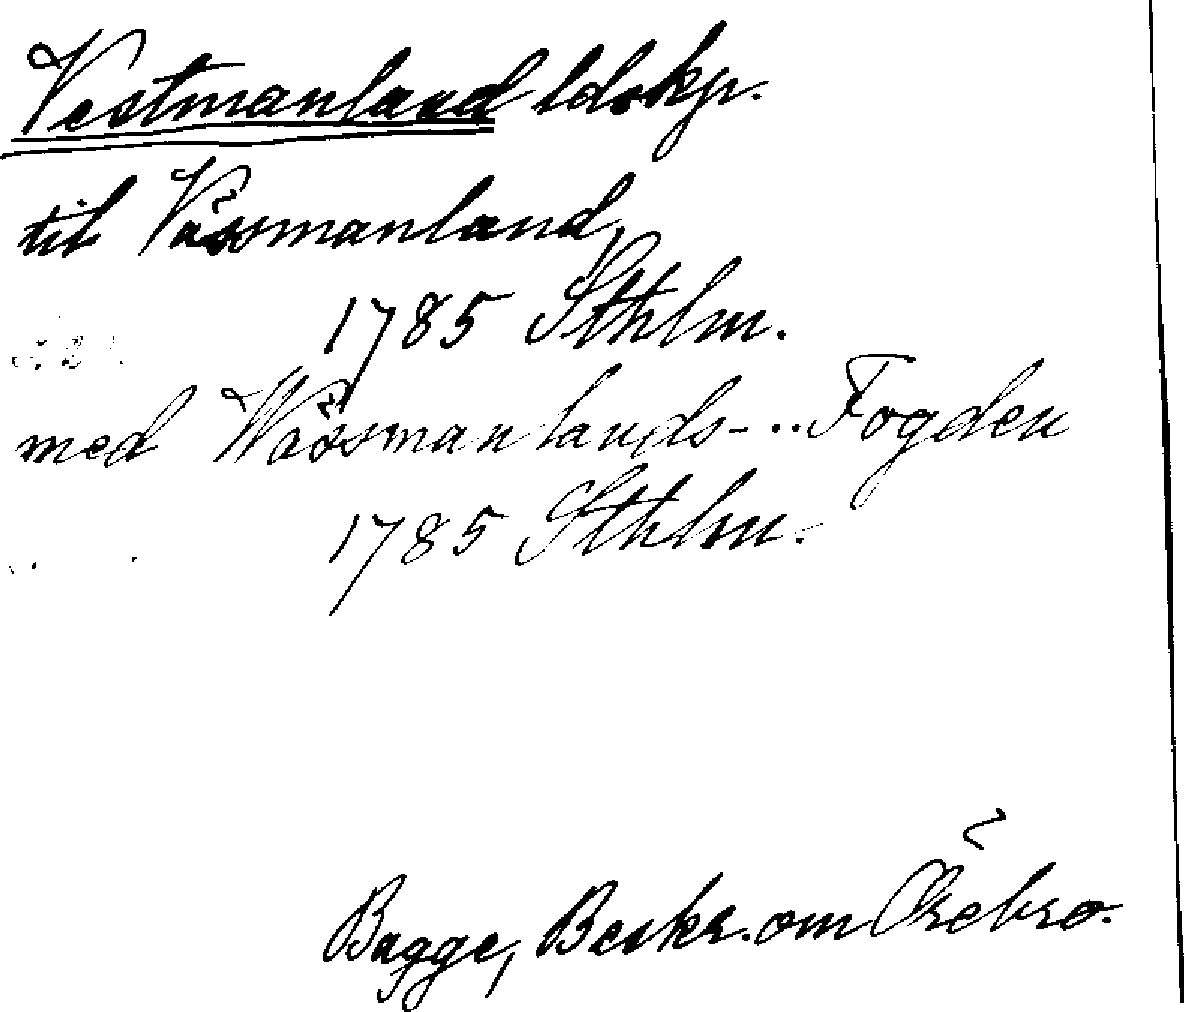 Vestmanland ldskp.
til Väsmanland,
1785 Sthlm.
med Wäsmanlands-..Fogden
1785 Sthlm.
Bagge, Beskr. om Örebro.